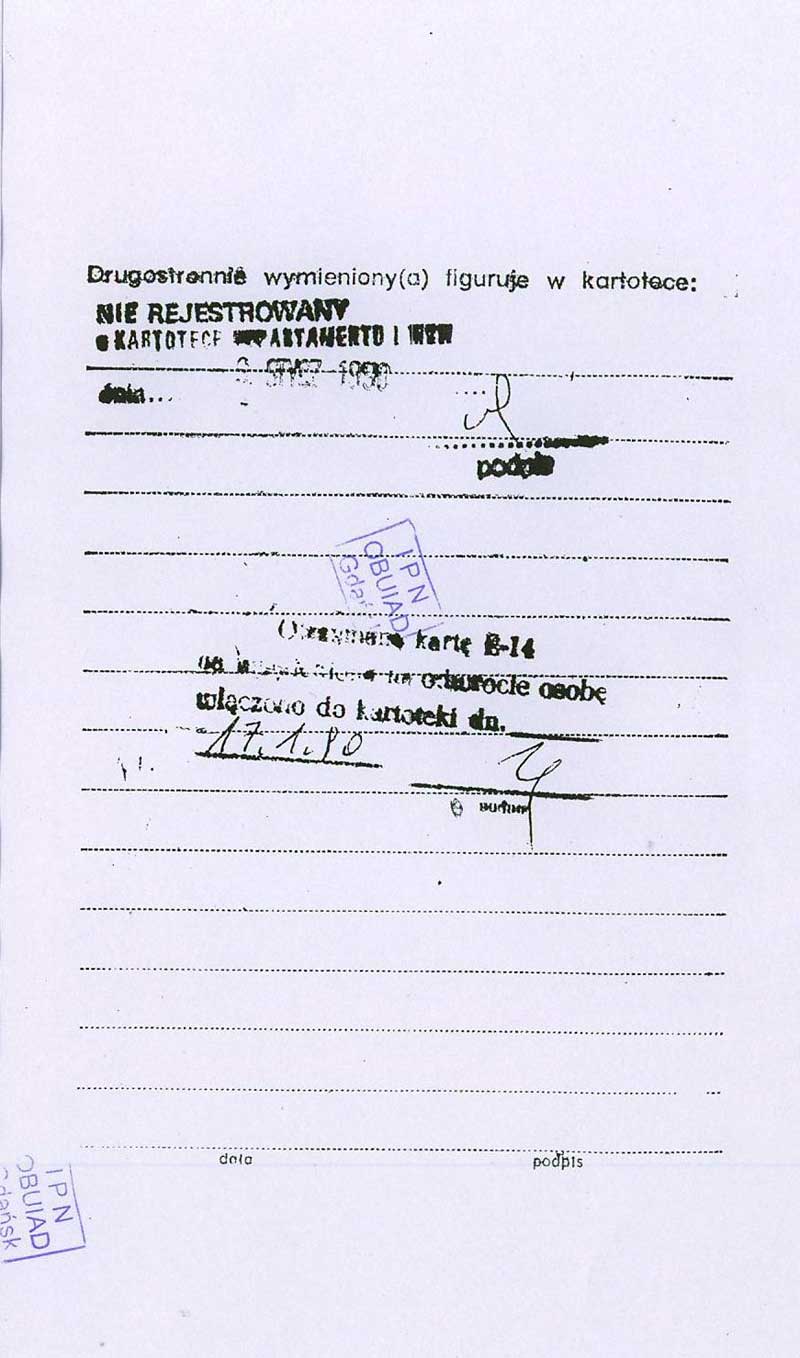 Drugostronnie wymieniony(a) figuruje w kartotece:
NIE REJESTROWANY
KARTOTECE I MSW
1990
dnia...
podpis
IPN
OBUIAD
Gdańsk
Otrzymano kartę E-14
odwrocie osobę
włączono do kartoteki dn.
17.1.90
data podpis
IPN
OBUIAD
Gdańsk